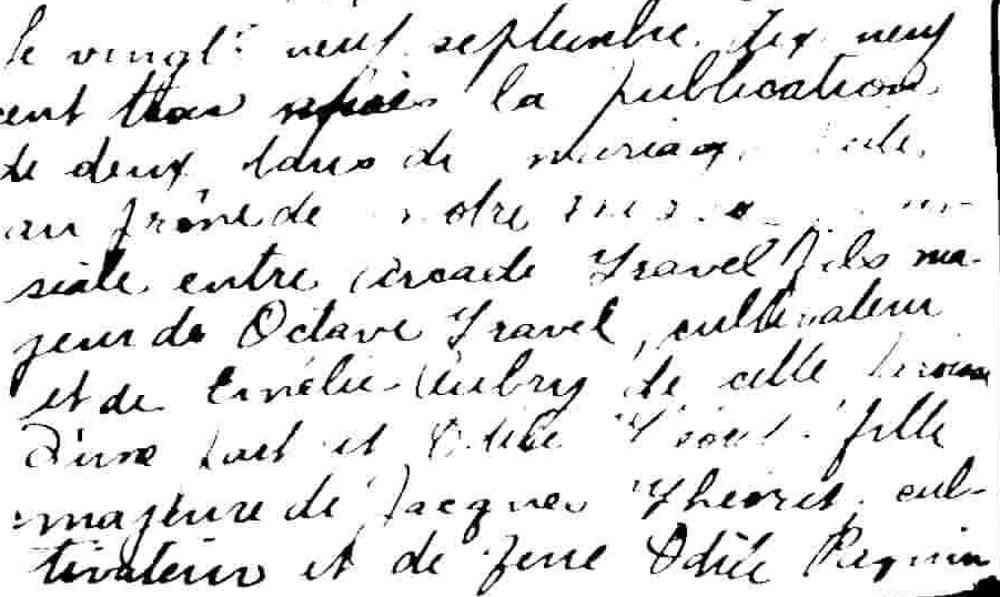 le vingt neuf septembre dix neuf
cent trois après la publication
de deux bans de mariage
au prône de notre
siale entre Arcade Travel fils ma-
jeur de Octave Travel, cultivateur
et de Emélie Aubry de cette paroisse
d'une part et Odile fille
majeure de Jacques Theoret cul-
tivateur et de feue Odile